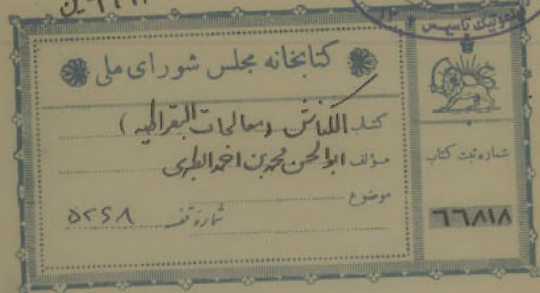 کتابخانه مجلس شورای ملی
کتاب الکناش (معالجات البقراطیه)
مؤلف ابوالحسن محمد بن احمد الطبری
موضوع
شماره قفسه ۵۲۶۸
شماره ثبت کتاب
۶۶۸۱۸